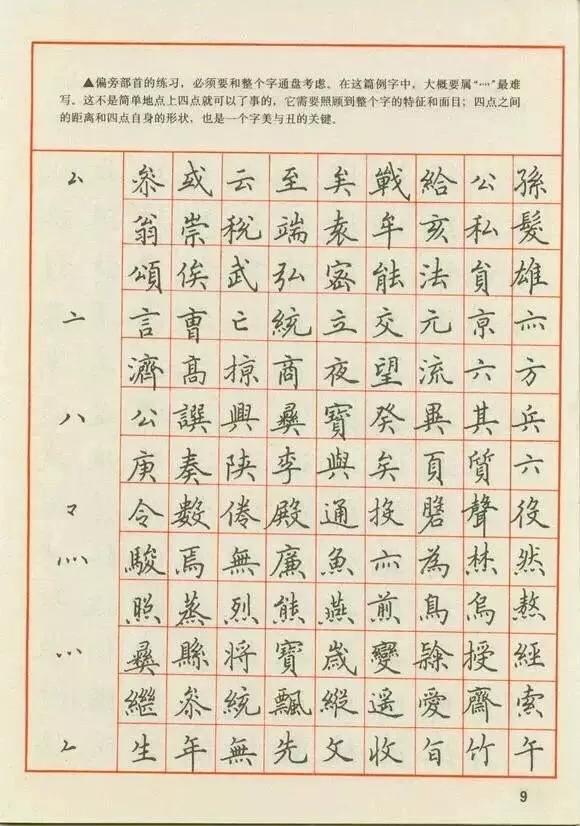 ▲偏旁部首的练习，必须要和整个字通盘考虑。在这篇例字中，大概要属“灬”最难
写。这不是简单地点上四点就可以了事的，它需要照顾到整个字的特征和面目；四点之间
的距离和四点自身的形状，也是一个字美与丑的关键。
厶 叅 或 云 至 矣 戰 給 公 孫
翁 崇 稅 端 袁 牟 亥 私 髮
頌 俟 武 弘 密 能 法 貟 雄
亠 言 亡 統 立 交 元 京 亦
濟 高 掠 商 夜 望 流 六 方
八 公 譔 興 彝 寶 癸 異 其 兵
庚 奏 陝 李 與 矣 頁 質 六
令 數 倦 殿 通 投 聲 役
灬 駿 焉 無 廉 魚 亦 為 然
照 蒸 烈 熊 燕 煎 鳥 烏 熬
彝 縣 将 寶 歲 變 授 經
繼 叅 統 飄 縱 遥 愛 齋 索
生 年 無 先 文 收 旨 竹 午
9